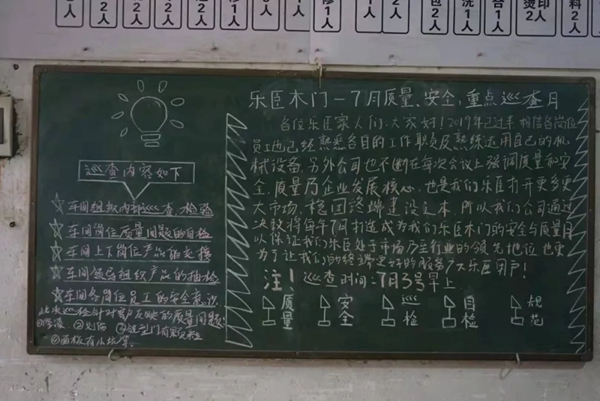 人 2人 2人 2人 1人 1人 1人 2人 包2人 洗1人 合1人 烫印2人 料2人
乐臣木门-7月质量、安全,重点巡查月
各位乐臣家人们:大家好!2019年已过半,相信各岗位
员工也已经熟悉各自的工作职责及熟练运用自己的机
械设备,另外公司也不断在每次会议上强调质量和安
全,质量乃企业发展核心,也是我们乐臣打开更多更
大市场,稳固终端建设之本,所以我们公司通过
决议将每年7月打造成为我们乐臣木门的安全与质量月
以保证我们乐臣处于市场乃至行业的领先地位,也更
为了让我们的终端更好的服务广大乐臣用户!
注!巡查时间:7月3号早上
质量 安全 巡检 自检 规范
巡查内容如下
车间组织内部巡查、检验
车间岗位质量问题的自检
车间上下岗位产品的交接
车间领导组织产品的抽检
车间各岗位员工的安全意识
此次巡检针对客户反映的质量问题:
②划伤 ③
④面板有小坑等。